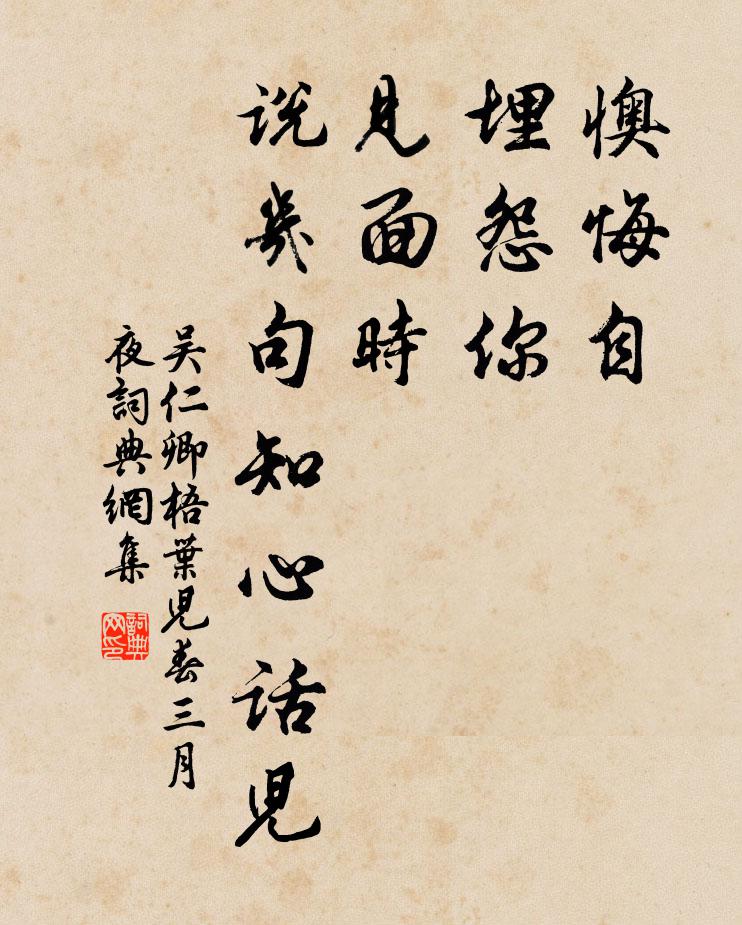 懊悔自
埋怨你
見面時
説幾句知心話兒
吴仁卿梧葉兒春三月
夜詞典網集
詞典网印